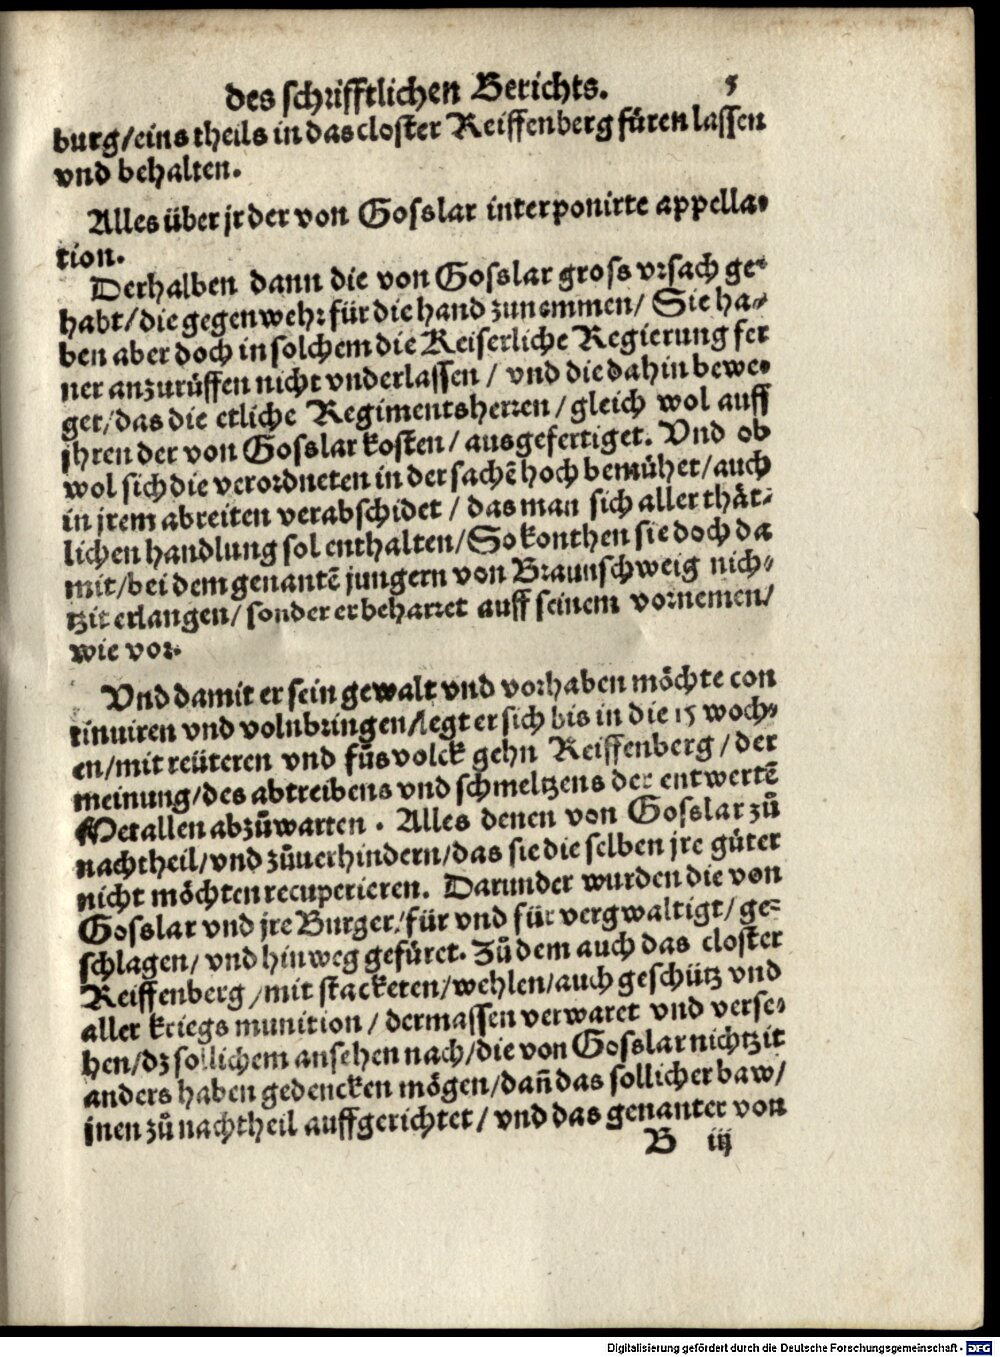 des schrifftlichen Berichts. 5
burg/eins theils in das closter Reiffenberg füren lassen
vnd behalten.
Alles über jr der von Gosslar interponirte appella-
tion.
Derhalben dann die von Gosslar gross vrsach ge-
habt/die gegenwehr für die hand zunemmen/ Sie ha-
ben aber doch in solchem die Keiserliche Regierung fer
ner anzurüffen nicht vnderlassen / vnd die dahin bewe-
get/das die etliche Regimentsherren/gleich wol auff
jhren der von Gosslar kosten/ausgefertiget. Vnd ob
wol sich die verordneten in der sachẽ hoch bemühet/auch
in jrem abreiten verabschidet / das man sich aller thät-
lichen handlung sol enthalten/So konthen sie doch da
mit/bei dem genantẽ jungern von Braunschweig nich-
tzit erlangen/ sonder er beharret auff seinem vornemen/
wie vor.
Vnd damit er sein gewalt vnd vorhaben möchte con
tinuiren vnd volnbringen/legt er sich bis in die 15 woch-
en/mit reüteren vnd fůsvolck gehn Reiffenberg/der
meinung/des abtreibens vnd schmeltzens der entwertẽ
Metallen abzůwarten . Alles denen von Gosslar zů
nachtheil/vnd zůuerhindern/das sie die selben jre güter
nicht möchten recuperieren. Darunder wurden die von
Gosslar vnd jre Burger/für vnd für vergwaltigt/ge-
schlagen/vnd hinweg gefüret. Zů dem auch das closter
Reiffenberg/mit stacketen/wehlen/auch geschütz vnd
aller kriegs munition / dermassen verwaret vnd verse-
hen/dz sollichem ansehen nach/die von Gosslar nichtzit
anders haben gedencken mögen/dañ das sollicher baw/
jnen zů nachtheil auffgerichtet/ vnd das genanter von
B iij
Digitalisierung gefördert durch die Deutsche Forschungsgemeinschaft - DFG